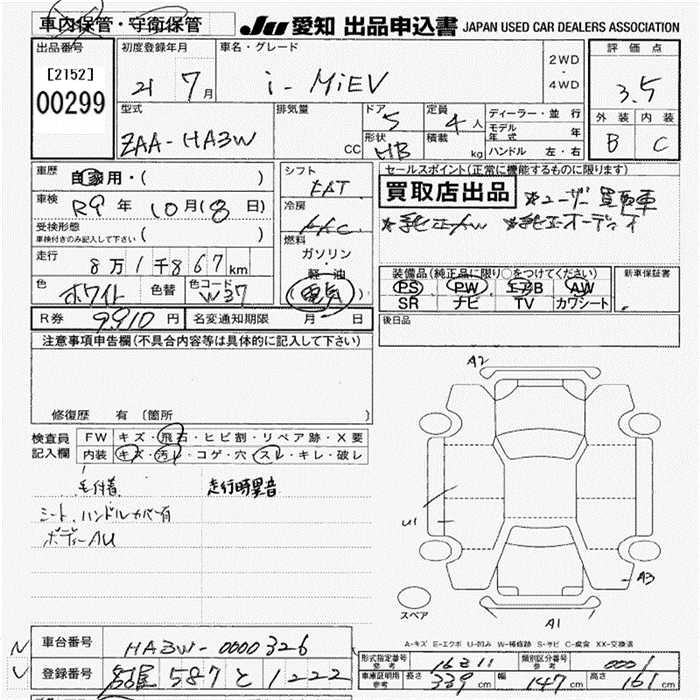 車内保管・守衛保管
JU 愛知 出品申込書 JAPAN USED CAR DEALERS ASSOCIATION
出品番号
[2152]
00299
初度登録年月
21 7月
車名・グレード
i-MiEV
2WD
・
4WD
評価点
3.5
外装 内装
B C
型式
ZAA-HA3W
排気量
CC
ドア
5
形状
HB
定員
4人
積載
kg
ディーラー・並行
モデル年式 年
ハンドル 左・右
車歴
自家用・( )
車検
R9年 10月(8日)
受検形態
車検付きのみ記入して下さい ( )
走行
8万1千867km
色
ホワイト
色替
色コード
W37
シフト
FAT
冷房
AAC
燃料
ガソリン
・
軽・油
電気
セールスポイント(正常に機能するものに限ります)
買取店出品
*ユーザー買取車
*純正AW *純正オーディオ
装備品(純正品に限り○をつけてください)
PS PW エアB AW
SR ナビ TV カワシート
新車保証書
後日品
R券 9,910円 名変通知期限 月 日
注意事項申告欄(不具合内容等は具体的に記入して下さい)
修復歴 有 〔箇所 〕
検査員
記入欄
FW キズ・飛石・ヒビ割・リペア跡・X要
内装 キズ・汚レ・コゲ・穴・スレ・キレ・破レ
毛付着 走行時異音
シート、ハンドルカバー有
ボディーAU
A2
U1
A3
A1
スペア
A-キズ E-エクボ U-凹み W-補修跡 S-サビ C-腐食 XX-交換済
車台番号 HA3W-0000326
登録番号 名古屋 587 と 1222
型式指定番号
参考
16311
類別区分番号
参考
0001
車庫証明用
参考
長さ 339cm 幅 147cm 高さ 161cm